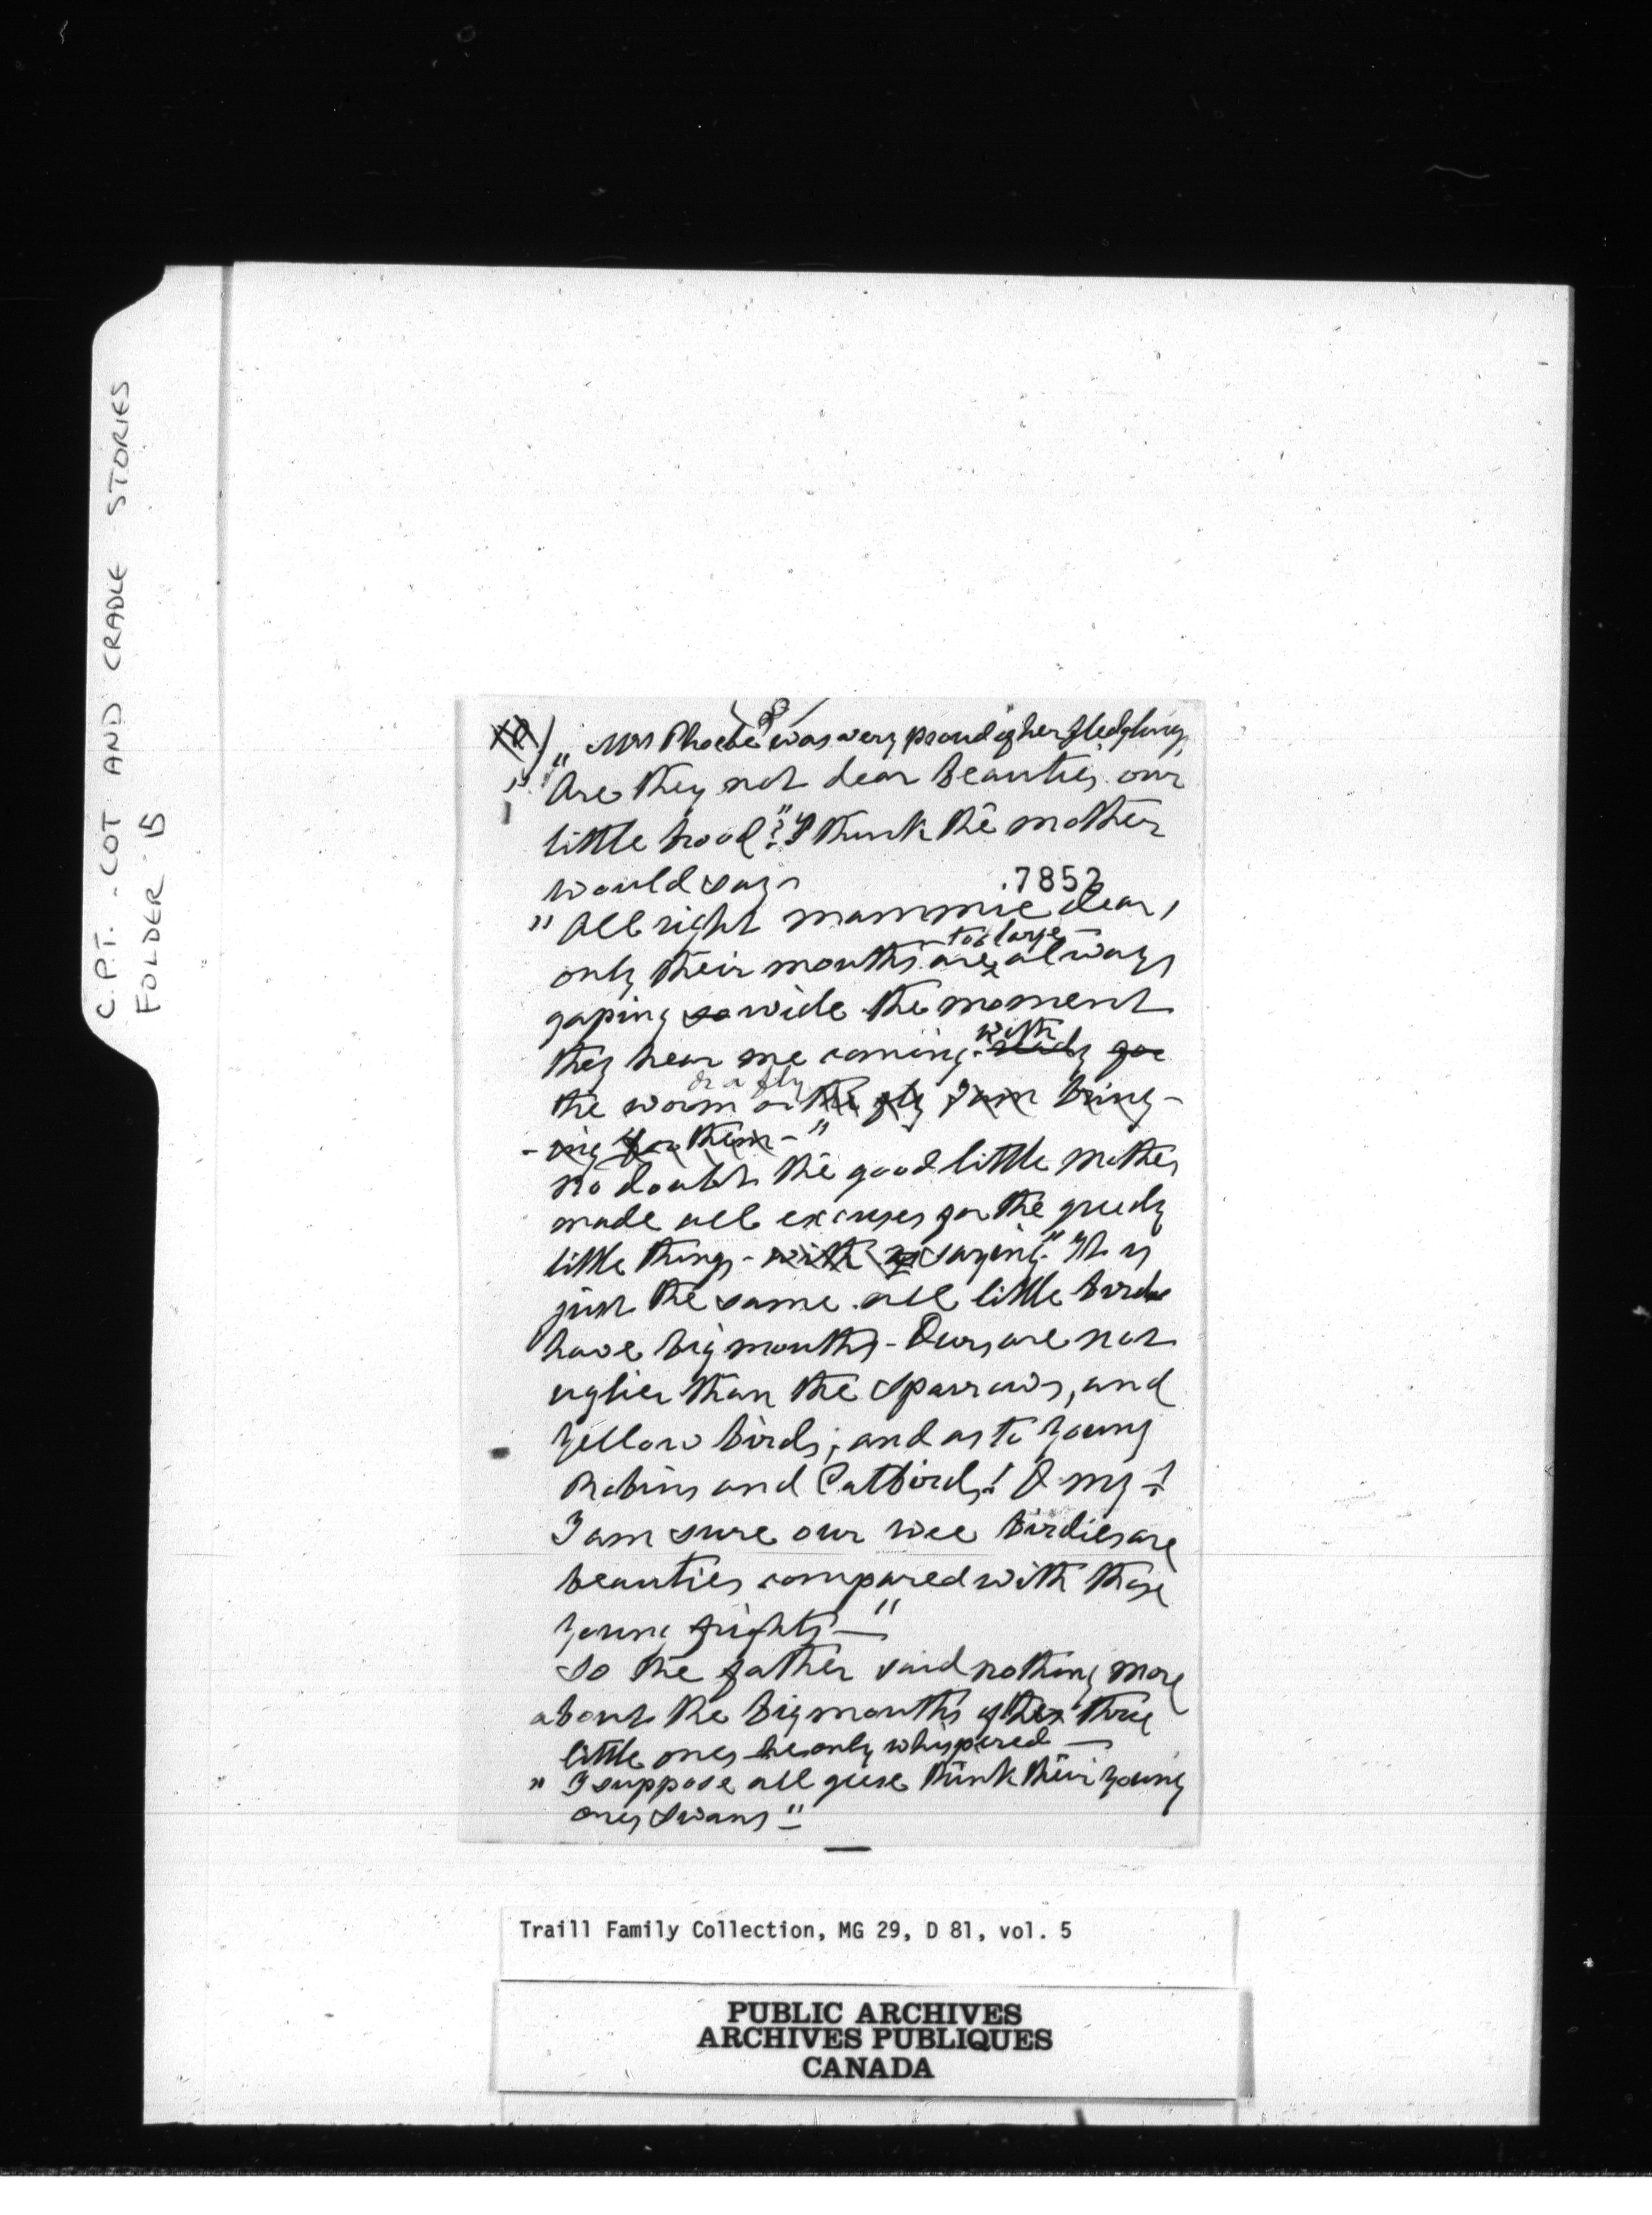 C.P.T. - COT AND CRADLE STORIES
FOLDER 15
8
" Mrs Phoebe was very proud of her fledglings
" Are they not dear beauties our
little brood?" I think the mother
would say
.7852
" All right mammie dear,
too large
only their mouths are always
gaping so wide the moment
with
they hear me coming ready for
or a fly
the worm or the fly I am bring-
-ing for them -"
no doubt the good little mother
made all excuses for the greedy
little things - with saying "It is
just the same all little birds
have big mouths - Ours are not
uglier than the Sparrows, and
yellow birds; and as to young
Robins and Catbirds! O my!
I am sure our wee birdies are
beauties compared with those
young frights -"
So the father said nothing more
about the big mouths of the three
little ones he only whispered -
" I suppose all geese think their young
ones Swans "
Traill Family Collection, MG 29, D 81, vol. 5
PUBLIC ARCHIVES
ARCHIVES PUBLIQUES
CANADA